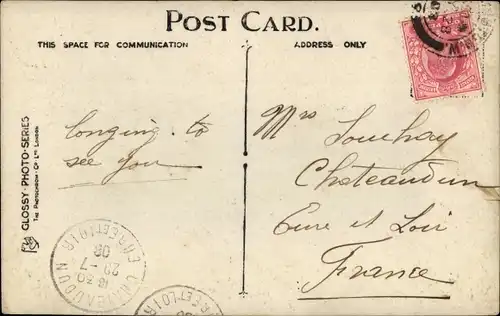 POST CARD.
THIS SPACE FOR COMMUNICATION
ADDRESS ONLY
GLOSSY·PHOTO·SERIES
THE PHOTOCHROM Co LTD LONDON
longing to
see you
Mrs Souchay
Chateaudun
Eure et Loir
France
CHATEAUDUN
EURE ET LOIR
16·30
29-7
08